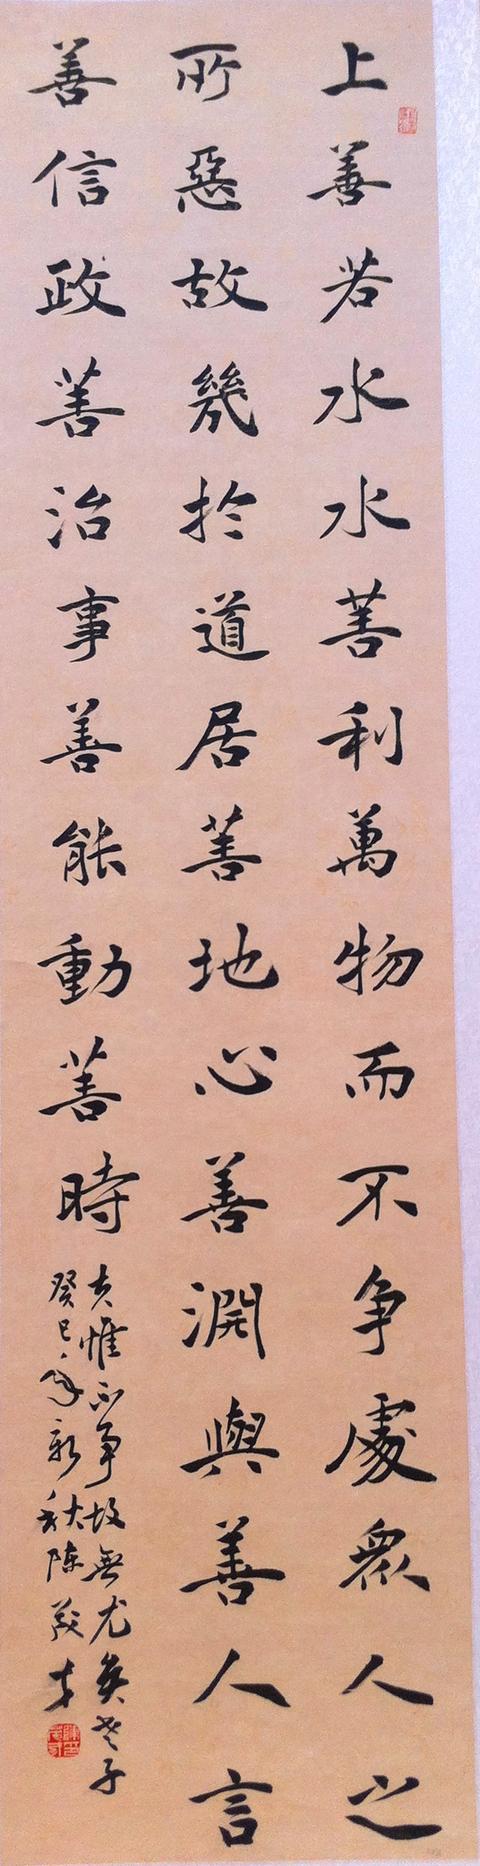 上善若水水善利萬物而不争處衆人之
所惡故幾於道居善地心善淵與善人言
善信政善治事善能動善時
夫惟不争故無尤矣老子
癸巳年新秋陈茂才